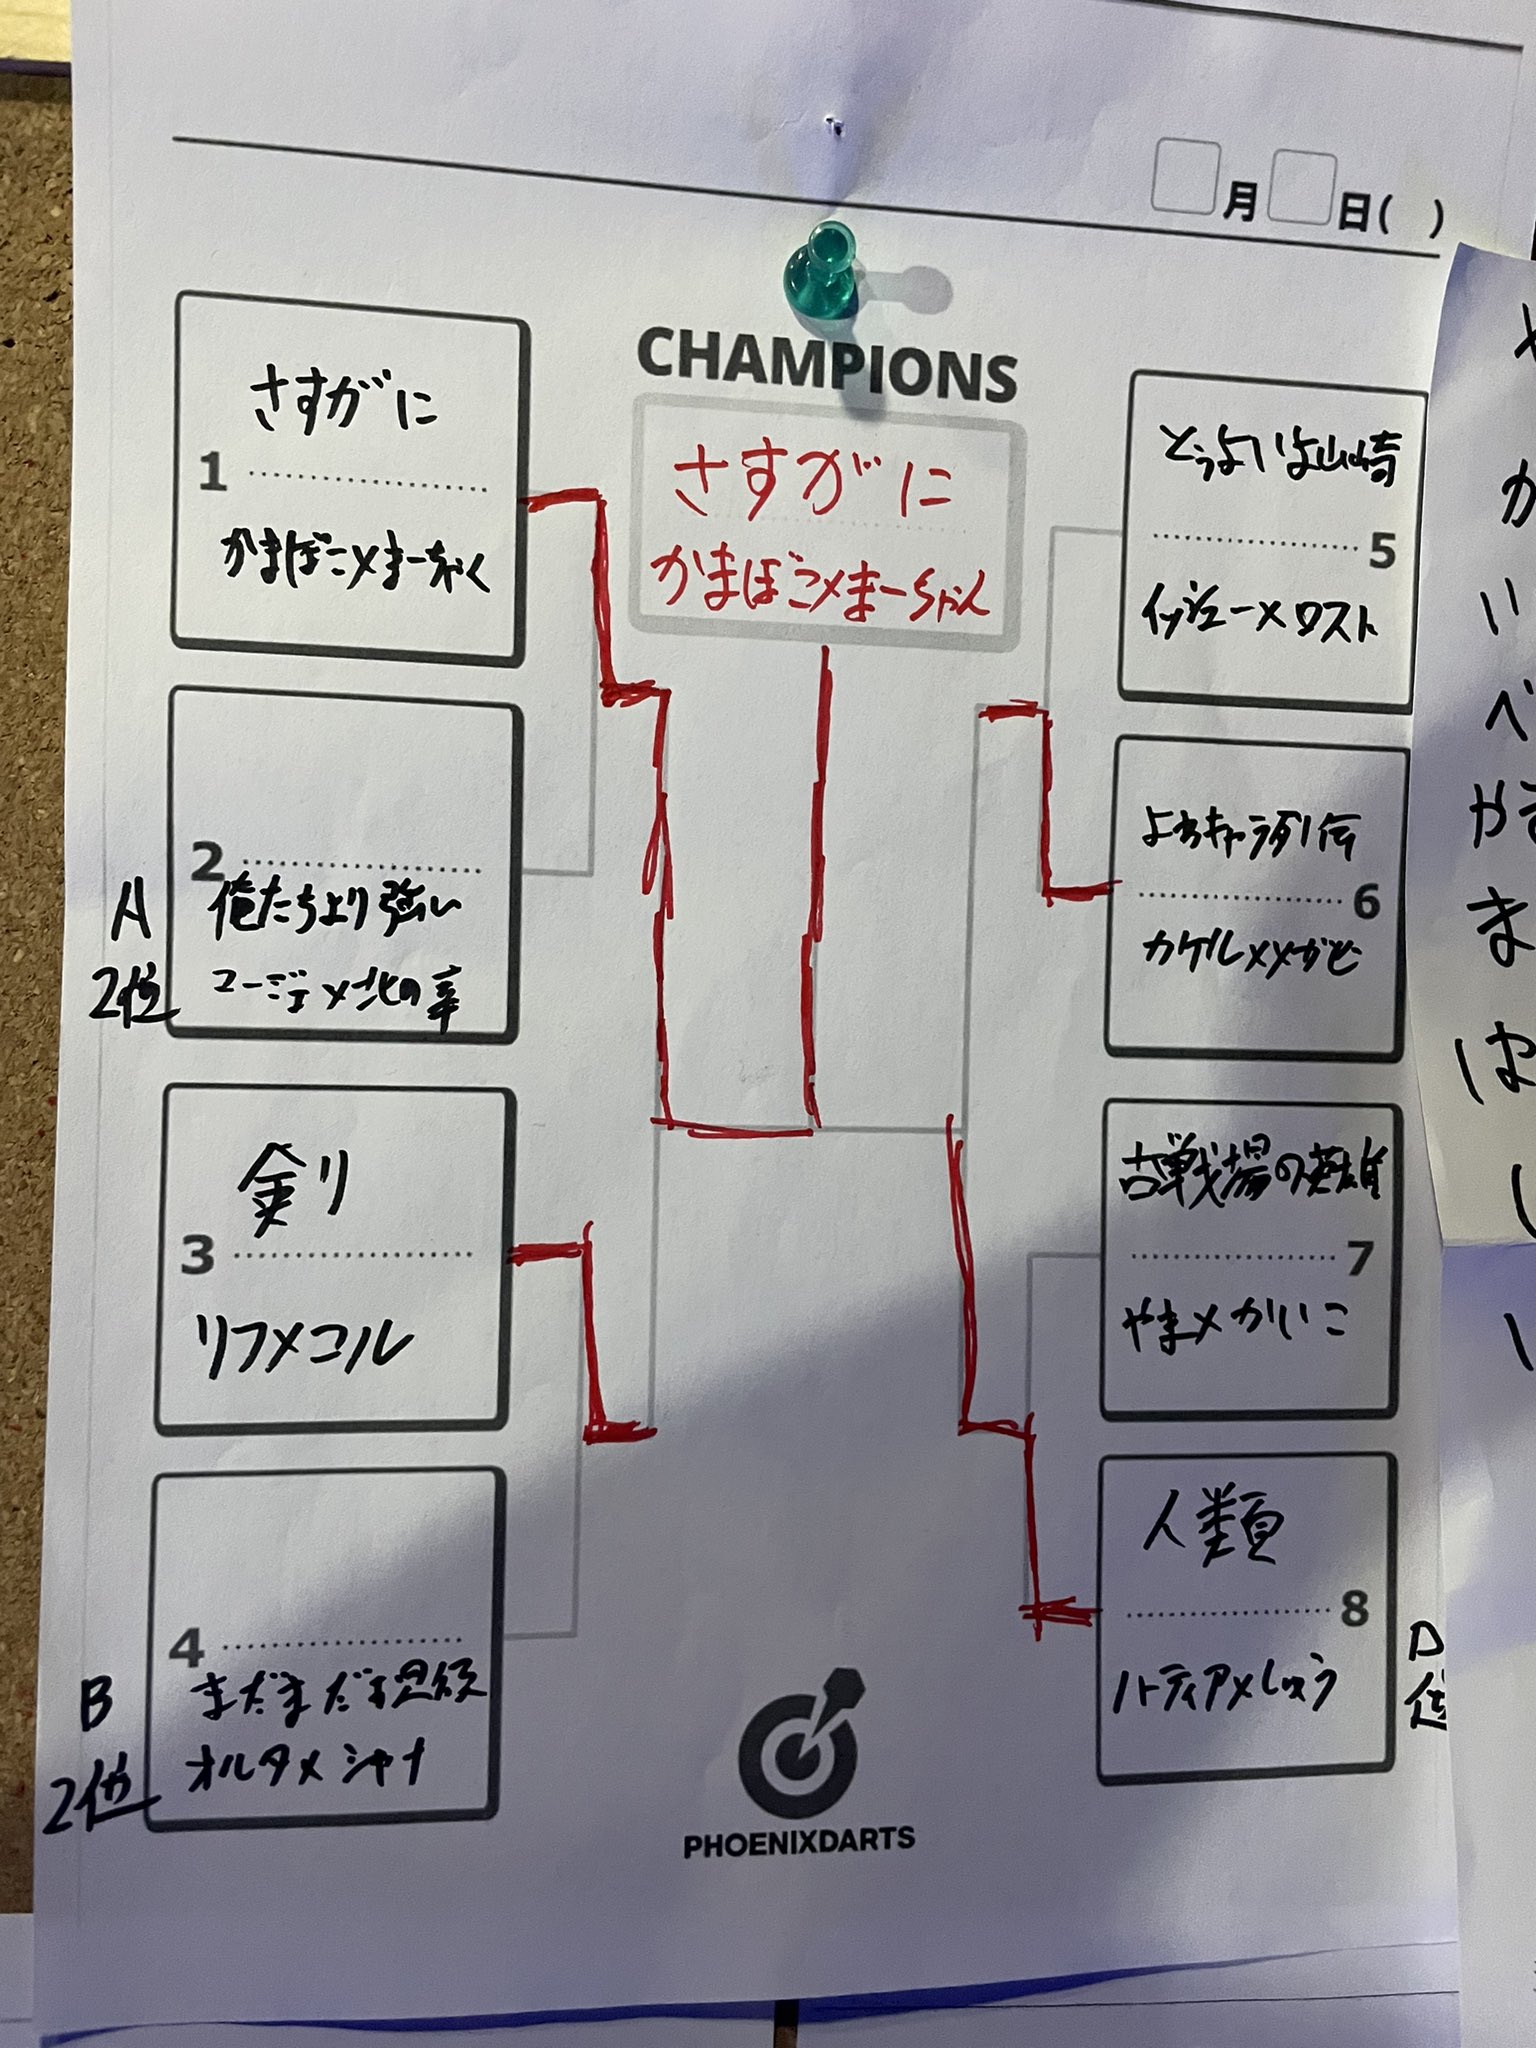 月 日( )
CHAMPIONS
さすがに
かまぼこ×まーちゃん
1
さすがに
かまぼこ×まーちゃん
A
2位
2
俺たちより強い
コージェ×北の幸
3
金リ
リフ×コル
B
2位
4
まだまだ
オルタ×シャナ
5
どうよいよ山崎
イッシュー×ロスト
6
よわキャラ列伝
カケル×メガセ
7
古戦場の英雄
やま×かいこ
8
人類
ハーディア×しゅう
D
位
PHOENIXDARTS